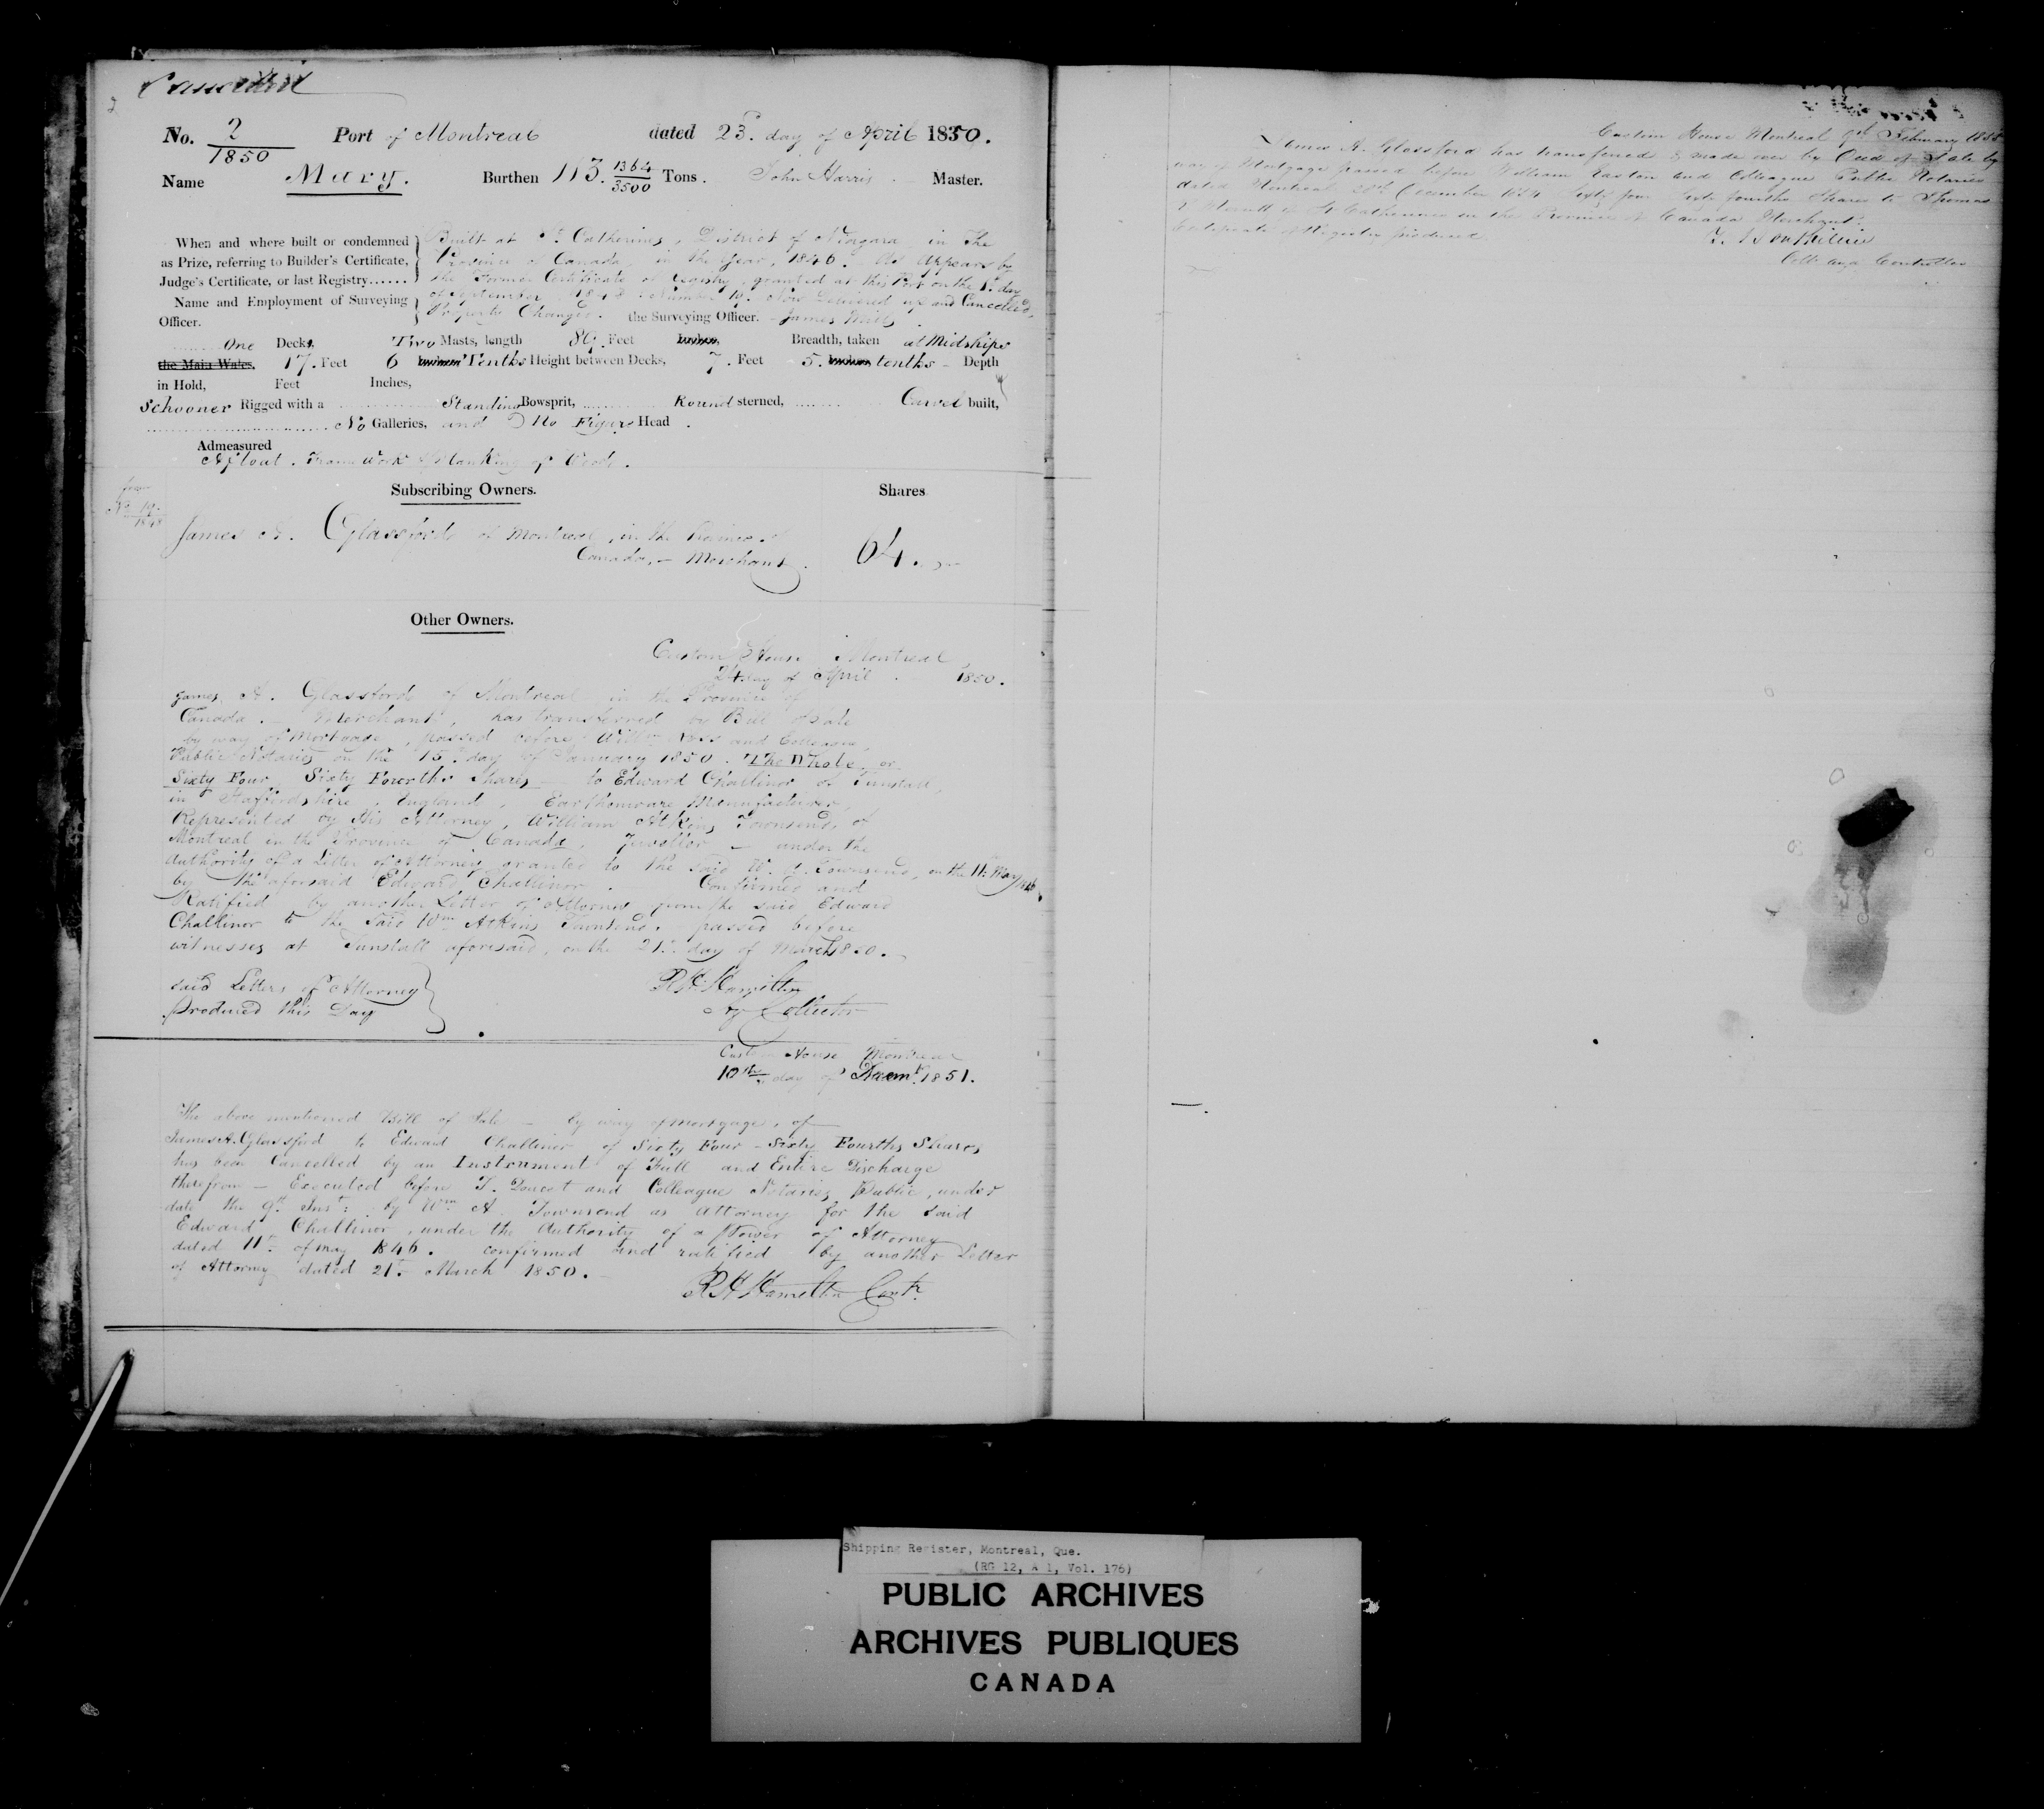 Cancelled
2
No. 2/1850 Port of Montreal dated 23d. day of April 1850.
Name Mary. Burthen 113. 1364/3500 Tons. John Harris Master.
When and where built or condemned
as Prize, referring to Builder's Certificate,
Judge's Certificate, or last Registry......
Name and Employment of Surveying
Officer.
Built at St. Catherines, District of Niagara in The
Province of Canada, in the Year, 1846. As Appears by
the Former Certificate of Registry, granted at this Port on the 1st. day
of September 1848. Number 19. Now Delivered up and Cancelled,
Property Changed. the Surveying Officer. James Mills
One Decks. Two Masts, length 89. Feet Inches, Breadth, taken at Midships
the Main Wales, 17. Feet 6 Inches Tenths Height between Decks, 7. Feet 5. Inches tenths - Depth
in Hold, Feet Inches,
Schooner Rigged with a Standing Bowsprit, Round sterned, Carvel built,
No Galleries, and No Figure Head.
Admeasured
Afloat. Frame Work & Planking of Wood.
Subscribing Owners. Shares
from
No 19
1848
James A. Glassford of Montreal, in the Province of
Canada, - Merchant. 64.
Other Owners.
Custom House Montreal
24 day of April 1850.
James A. Glassford of Montreal in the Province of
Canada. - Merchant, has transferred by Bill of Sale
by way of Mortgage, passed before Willm. Ross and Colleague,
Public Notaries on the 15th. day of January 1850. The Whole or
Sixty Four Sixty Fourths Shares - to Edward Challinor of Tunstall,
in Staffordshire, England, Earthenware Manufacturer,
Represented by His Attorney, William Atkins Townsend, of
Montreal in the Province of Canada, Jweller - under the
Authority of a Letter of Attorney granted to the said W. A. Townsend, on the 11th. May 1846
by the aforsaid Edward Challinor. Confirmed and
Ratified by another Letter of Attorney from the said Edward
Challinor to the said Wm Atkins Townsend. passed before
witnesses at Tunstall aforesaid, on the 21st. day of March 1850.
said Letters of Attorney
produced this Day
R H Hamilton
Ag Collector
Custom House Montreal
10th day of Decemr. 1851.
The above mentioned Bill of Sale - by way of Mortgage, of
James A. Glassford to Edward Challinor of Sixty Four - Sixty Fourths Shares
has been Cancelled by an Instrument of Full and Entire Discharge
therefrom - Executed before T. Doucet and Colleague Notaries Public, under
date the 9th. Inst: by Wm A Townsend as Attorney for the said
Edward Challinor, under the Authority of a Power of Attorney
dated 11th. of may 1846. confirmed and ratified by another Letter
of Attorney dated 21st. March 1850.
R H Hamilton Contr.
Custom House Montreal 9th February 1855
James A. Glassford has transferred & made over by Deed of Sale by
way of Mortgage passed before William Easton and Colleague Public Notaries
dated Montreal 28th December 1854 Sixty four Sixty fourths Shares to Thomas
R Merritt of St Catherines in the Province of Canada Merchant.
Certificate of Registry produced
T. Bouthillier
Collr and Controller
Shipping Register, Montreal, Que.
(RG 12, A 1, Vol. 176)
PUBLIC ARCHIVES
ARCHIVES PUBLIQUES
CANADA